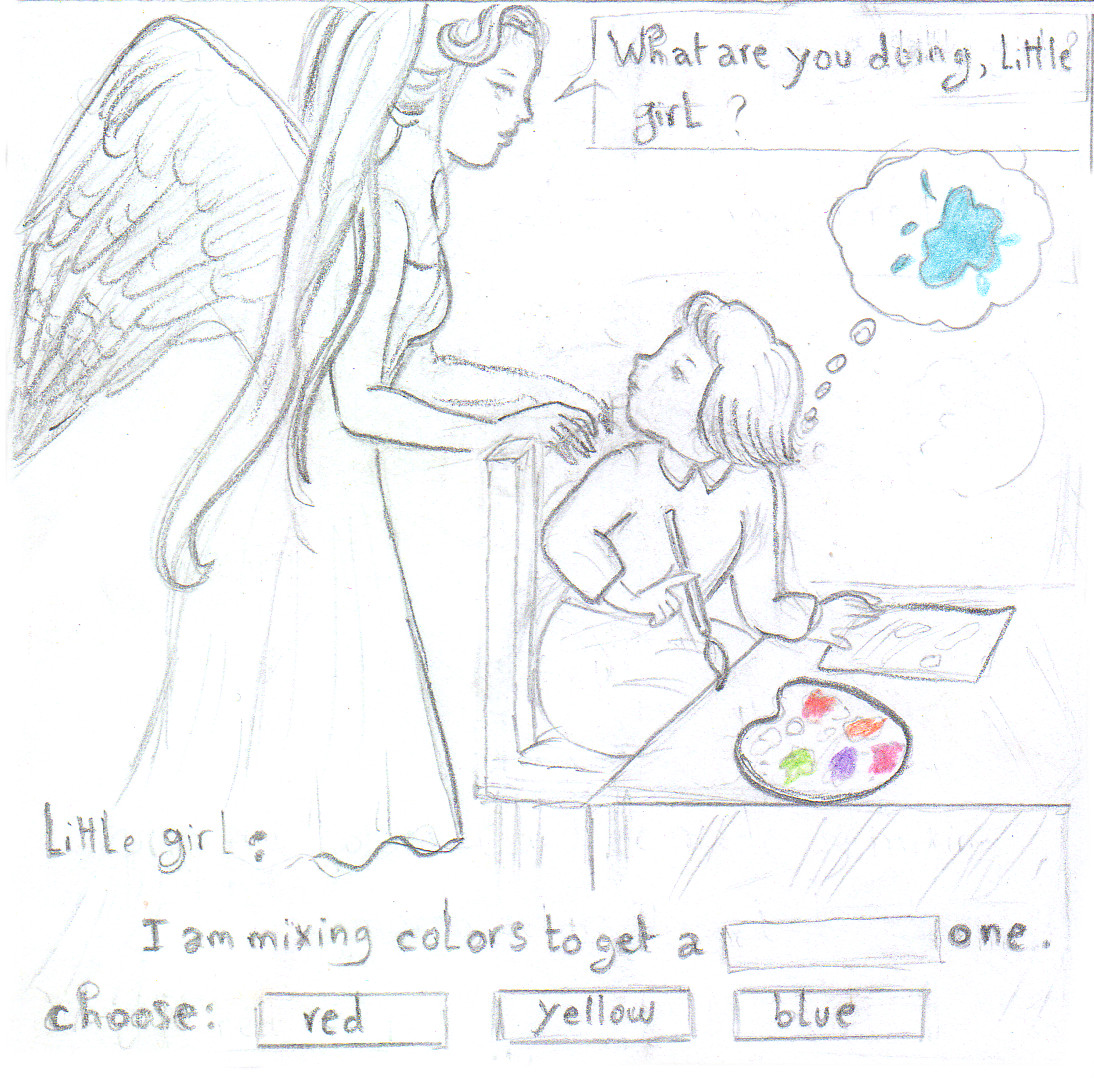 What are you doing, Little
girl ?
Little girl:
I am mixing colors to get a one.
choose: red yellow blue